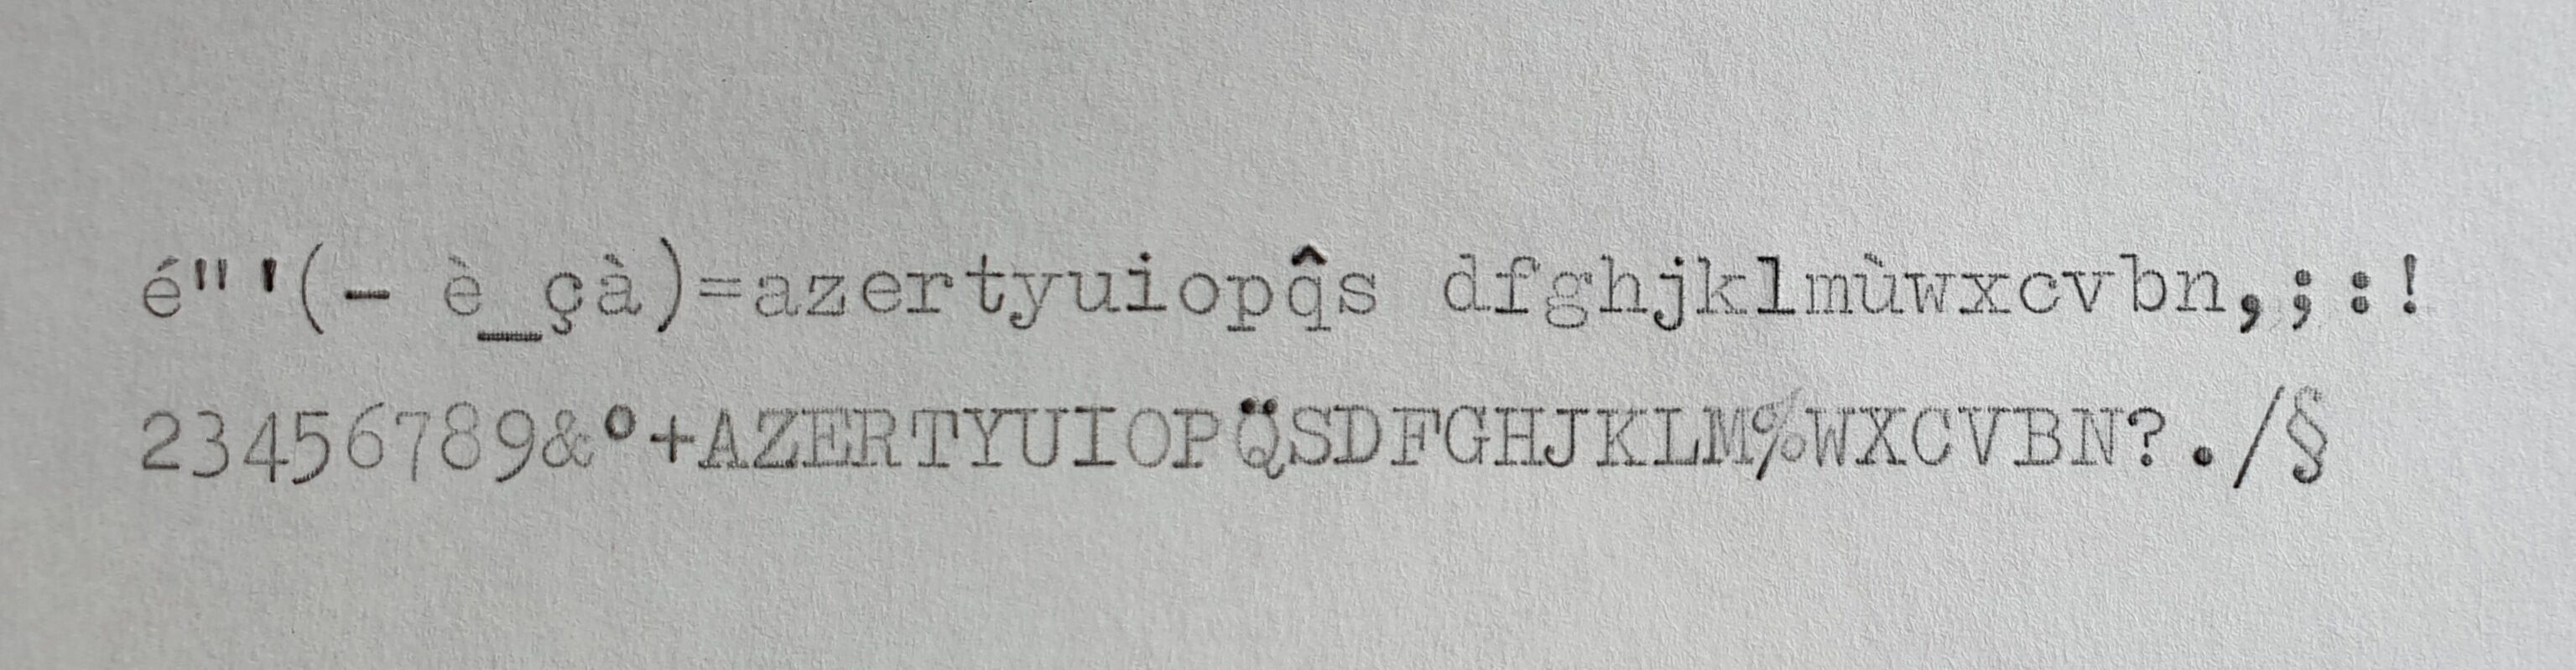 é"'(- è_çà)=azertyuiopq̂s dfghjklmùwxcvbn,;:!
23456789&°+AZERTYUIOPQ̈SDFGHJKLM%WXCVBN?./§